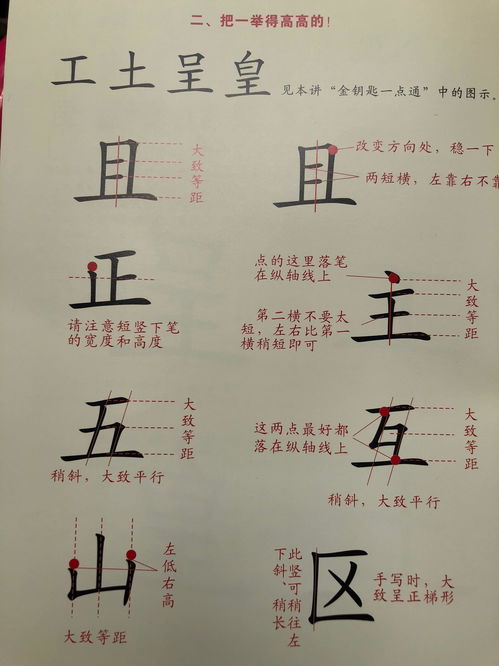 二、把一举得高高的！
工土呈皇 见本讲“金钥匙一点通”中的图示。
且
大致等距
且
改变方向处，稳一下
两短横，左靠右不靠
正
请注意短竖下笔
的宽度和高度
点的这里落笔
在纵轴线上
第二横不要太
短，左右比第一
横稍短即可
主
大致等距
五
大致等距
稍斜，大致平行
这两点最好都
落在纵轴线上
互
大致等距
稍斜，大致平行
山
左低右高
大致等距
此竖可稍往左
下斜、稍长
区
手写时，大
致呈正梯形